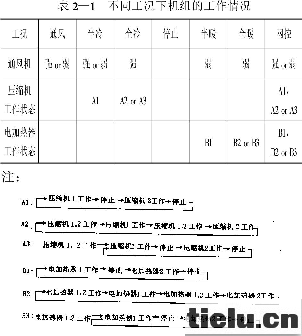 表 2—1 不同工况下机组的工作情况
工况 通风 半冷 全冷 停止 半暖 全暖 网控
通风机
压缩机
工作状态 A1 A2 or A3 A1,
A2 or A3
电加热器
工作状态 B1 B2 or B3 B1,
B2 or B3
注:
A1: 压缩机1工作→停止→压缩机2工作→停止
A2: 压缩机1,2工作→压缩机1工作→压缩机1,2工作→压缩机2工作
A3: 压缩机1,2工作 压缩机1工作→停止→压缩机2工作→停止
B1: 电加热器1工作→停止→电加热器2工作→停止
B2: 电加热器1,2工作→电加热器1工作→电加热器1,2工作→电加热器2工作
B3: 电加热器1,2工作 电加热器1工作→停止
tielu.cn